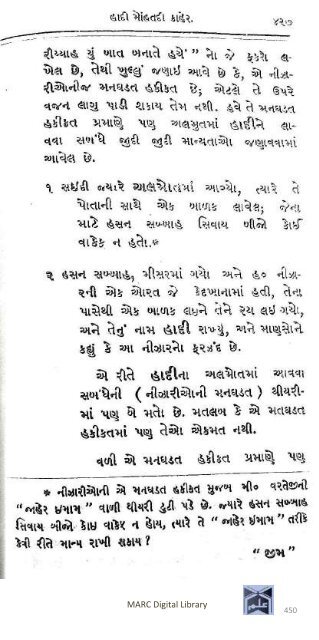 હાદી મોહતદી કાહેર.
૪૨૭
રીય્યાહ યું ખાત બનાતે હયેં” નો જે ફકરો લ-
ખેલ છે, તેથી ખુલ્લું જણાઈ આવે છે કે, એ નીઝા-
રીઓનીજ મનઘડત હકીકત છે; એટલે તે ઉપરે
વજન લાગુ પાડી શકાય તેમ નથી. હવે તે મનઘડત
હકીકત પ્રમાણે પણ અલમુતમાં હાદીને લા-
વવા સબંધે જુદી જુદી માન્યતાઓ જણાવવામાં
આવેલ છે.
૧ સઈદી જ્યારે અલમોતમાં આવ્યો, ત્યારે તે
પોતાની સાથે એક બાળક લાવેલ; જેના
માટે હસન સબ્બાહ સિવાય બીજો કોઈ
વાકેફ ન હતો.*
૨ હસન સબ્બાહ, મીસરમાં ગયો અને હ૦ નીઝા-
રની એક ઓરત જે કેદખાનામાં હતી, તેના
પાસેથી એક બાળક લઇને તેને રય લઈ ગયો,
અને તેનું નામ હાદી રાખ્યું, અને માણસોને
કહ્યું કે આ નીઝારનો ફરઝંદ છે.
એ રીતે હાદીના અલમોતમાં આવવા
સબંધેની ( નીઝારીઓની મનઘડત ) થીયરી-
માં પણ બે મતો છે. મતલબ કે એ મનઘડત
હકીકતમાં પણ તેઓ એકમત નથી.
વળી એ મનઘડત હકીકત પ્રમાણે પણ
* નીઝારીઓની એ મનઘડત હકીકત મુજબ મી૦ વરતેજીની
“જાહેર ઇમામ” વાળી થીયરી તુટી પડે છે. જ્યારે હસન સબ્બાહ
સિવાય બીજો કોઇ વાકેફ ન હોય, ત્યારે તે “જાહેર ઇમામ” તરીકે
કેવી રીતે માન્ય રાખી શકાય ?
“જીમ”
MARC Digital Library
450